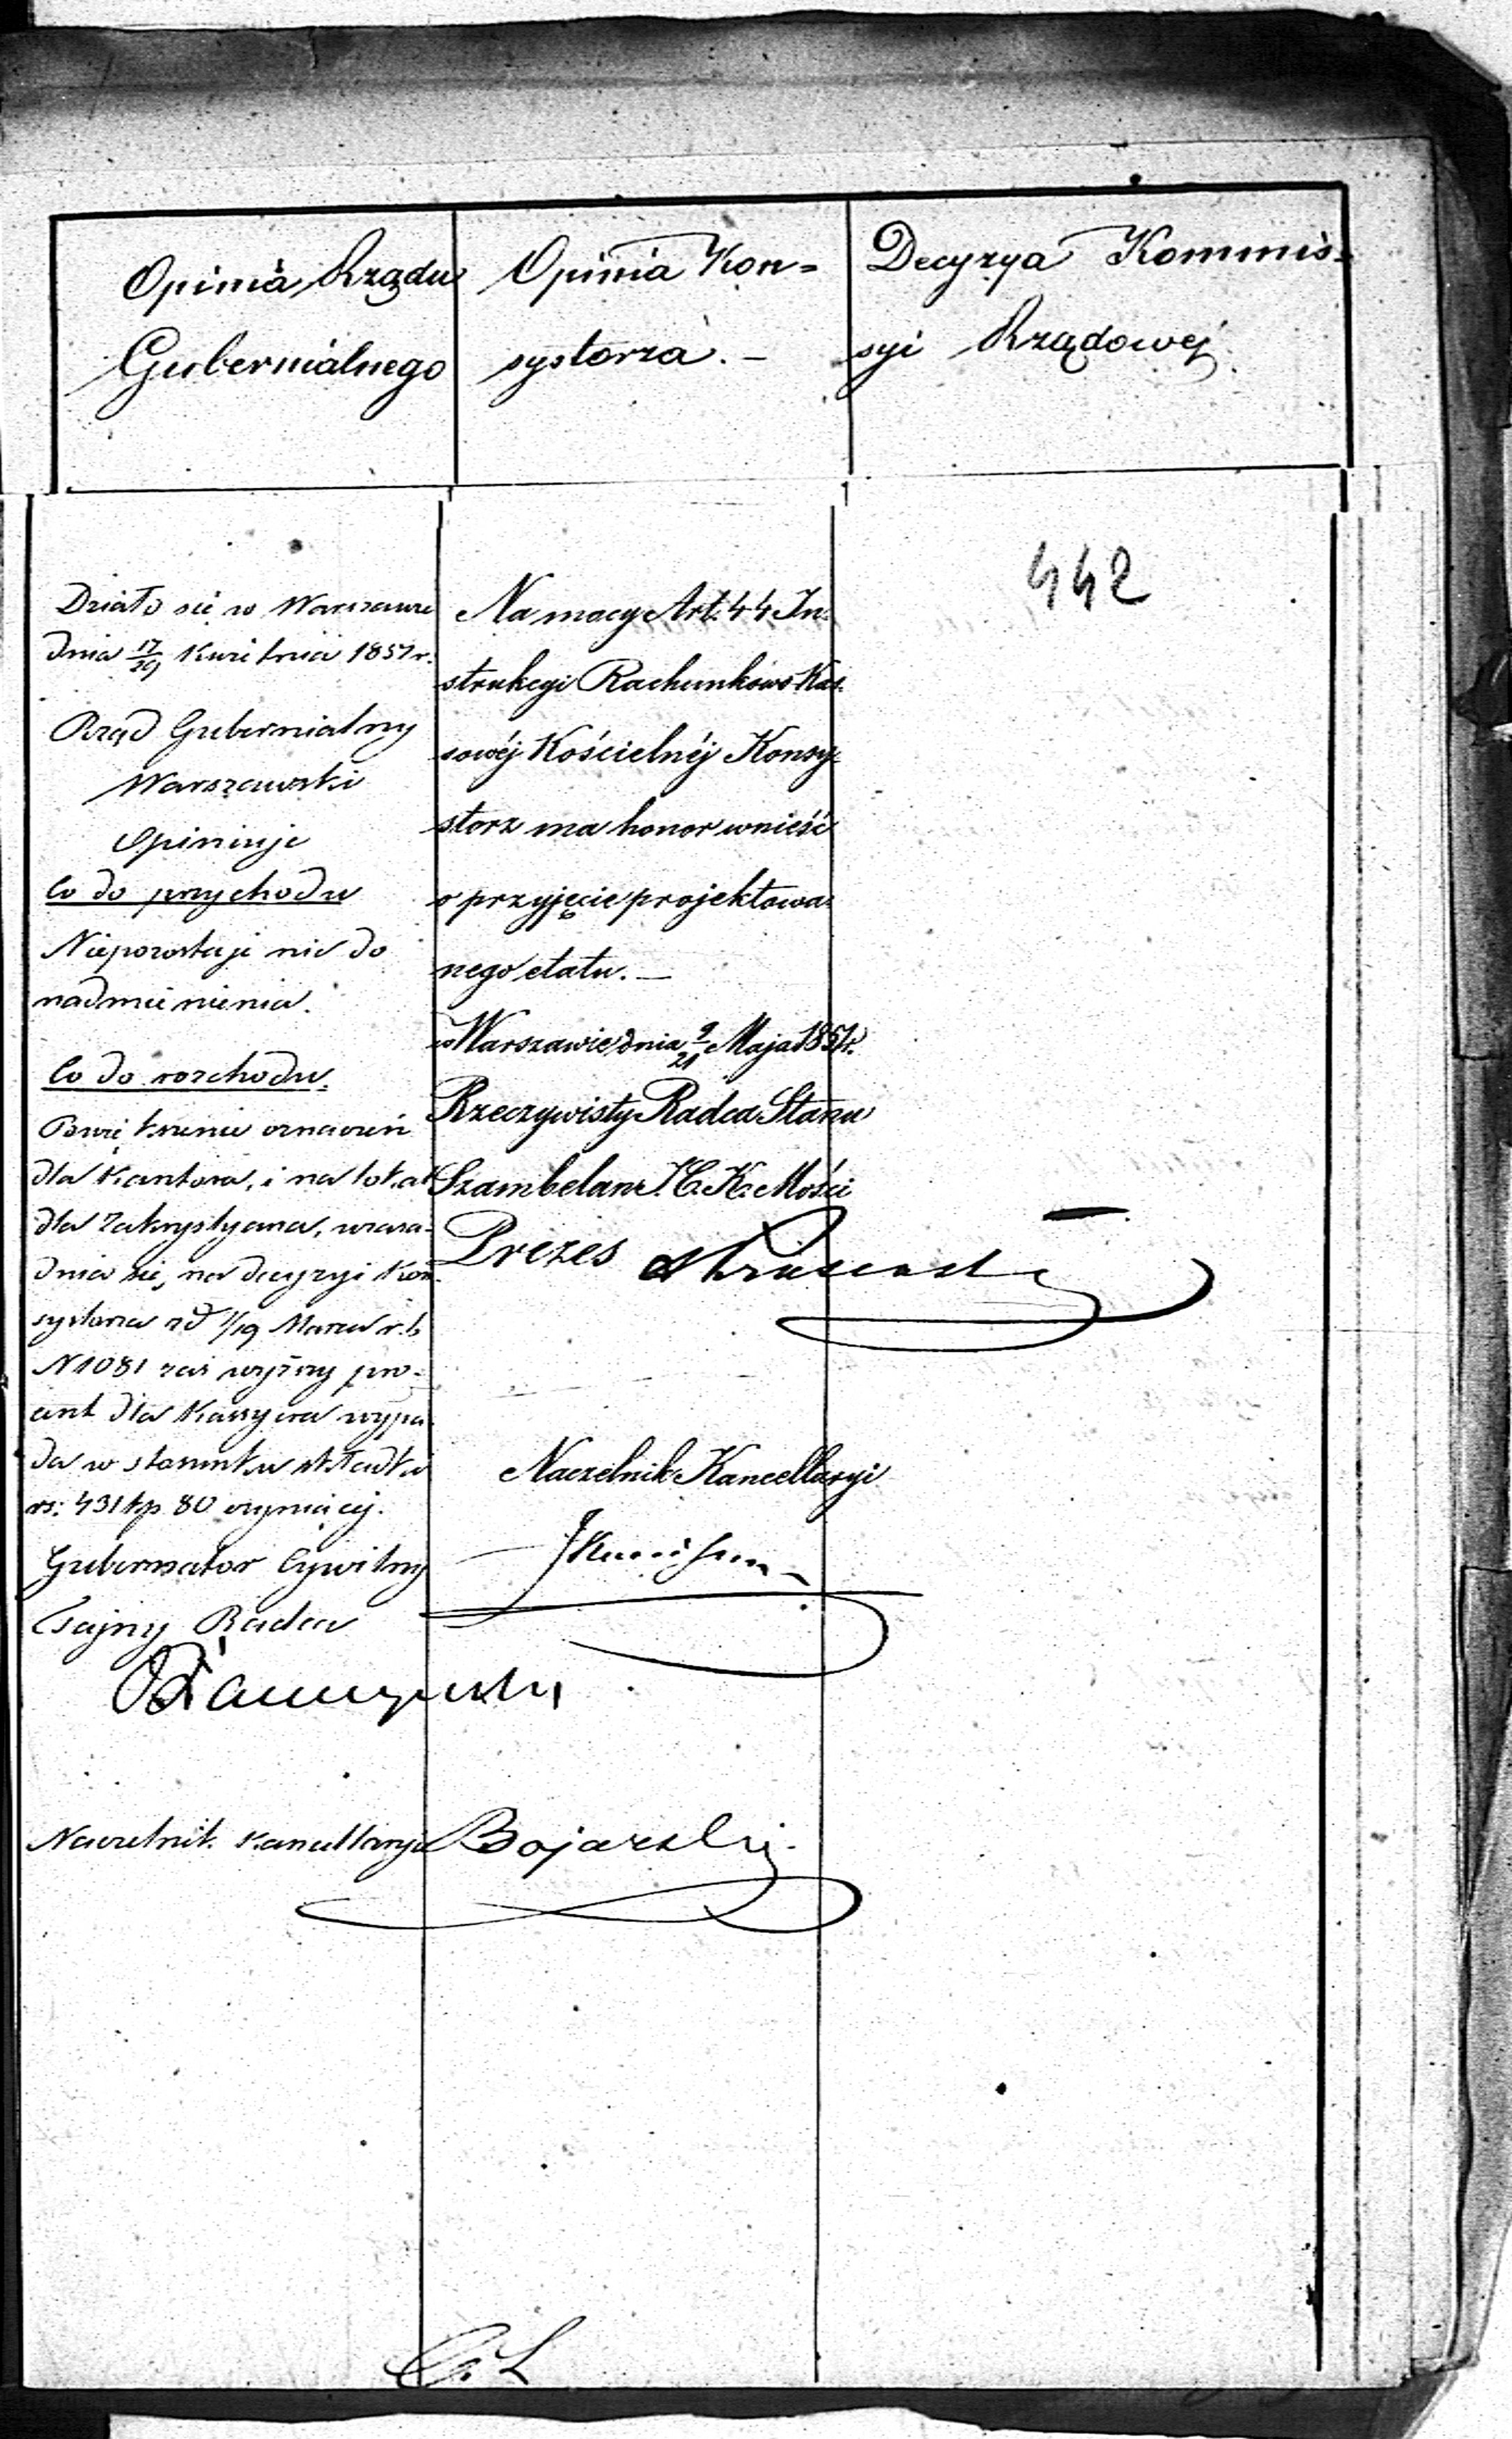 Opinia Rządu
Gubernialnego
Opinia Kon=
systorza. —
Decyzya Kommis=
syi Rządowej
442
Działo się w Warszawie
dnia 17/29 Kwietnia 1851 r.
Rząd Gubernialny
Warszawski
Opiniuje
Co do przychodu
Niepozostaje nic do
nadmienienia.
Co do rozchodu.
Powiększenie oznaczeń
dla Kantora, i na lokal
dla Zakrystyana, uzasa-
dnia się, na decyzyi Kon-
systorza z d 7/19 Marca r.b.
N 1081 zaś wyższy pro-
cent dla Kassyera wypa-
da w stosunku składki
rs: 431 kp 80 wynoszącej.
Gubernator Cywilny
Tajny Radca
Naczelnik Kancellaryi Bojarski
Na mocy Art. 44 In-
strukcyi Rachunkowo Kas-
sowéj Kościelnéj Konsy-
storz ma honor wnieść
o przyjęcie projektowa-
nego etatu. —
w Warszawie dnia 9/21 Maja 1851 r.
Rzeczywisty Radca Stanu
Szambelan J. C. K. Mości
Prezes
Naczelnik Kancellaryi